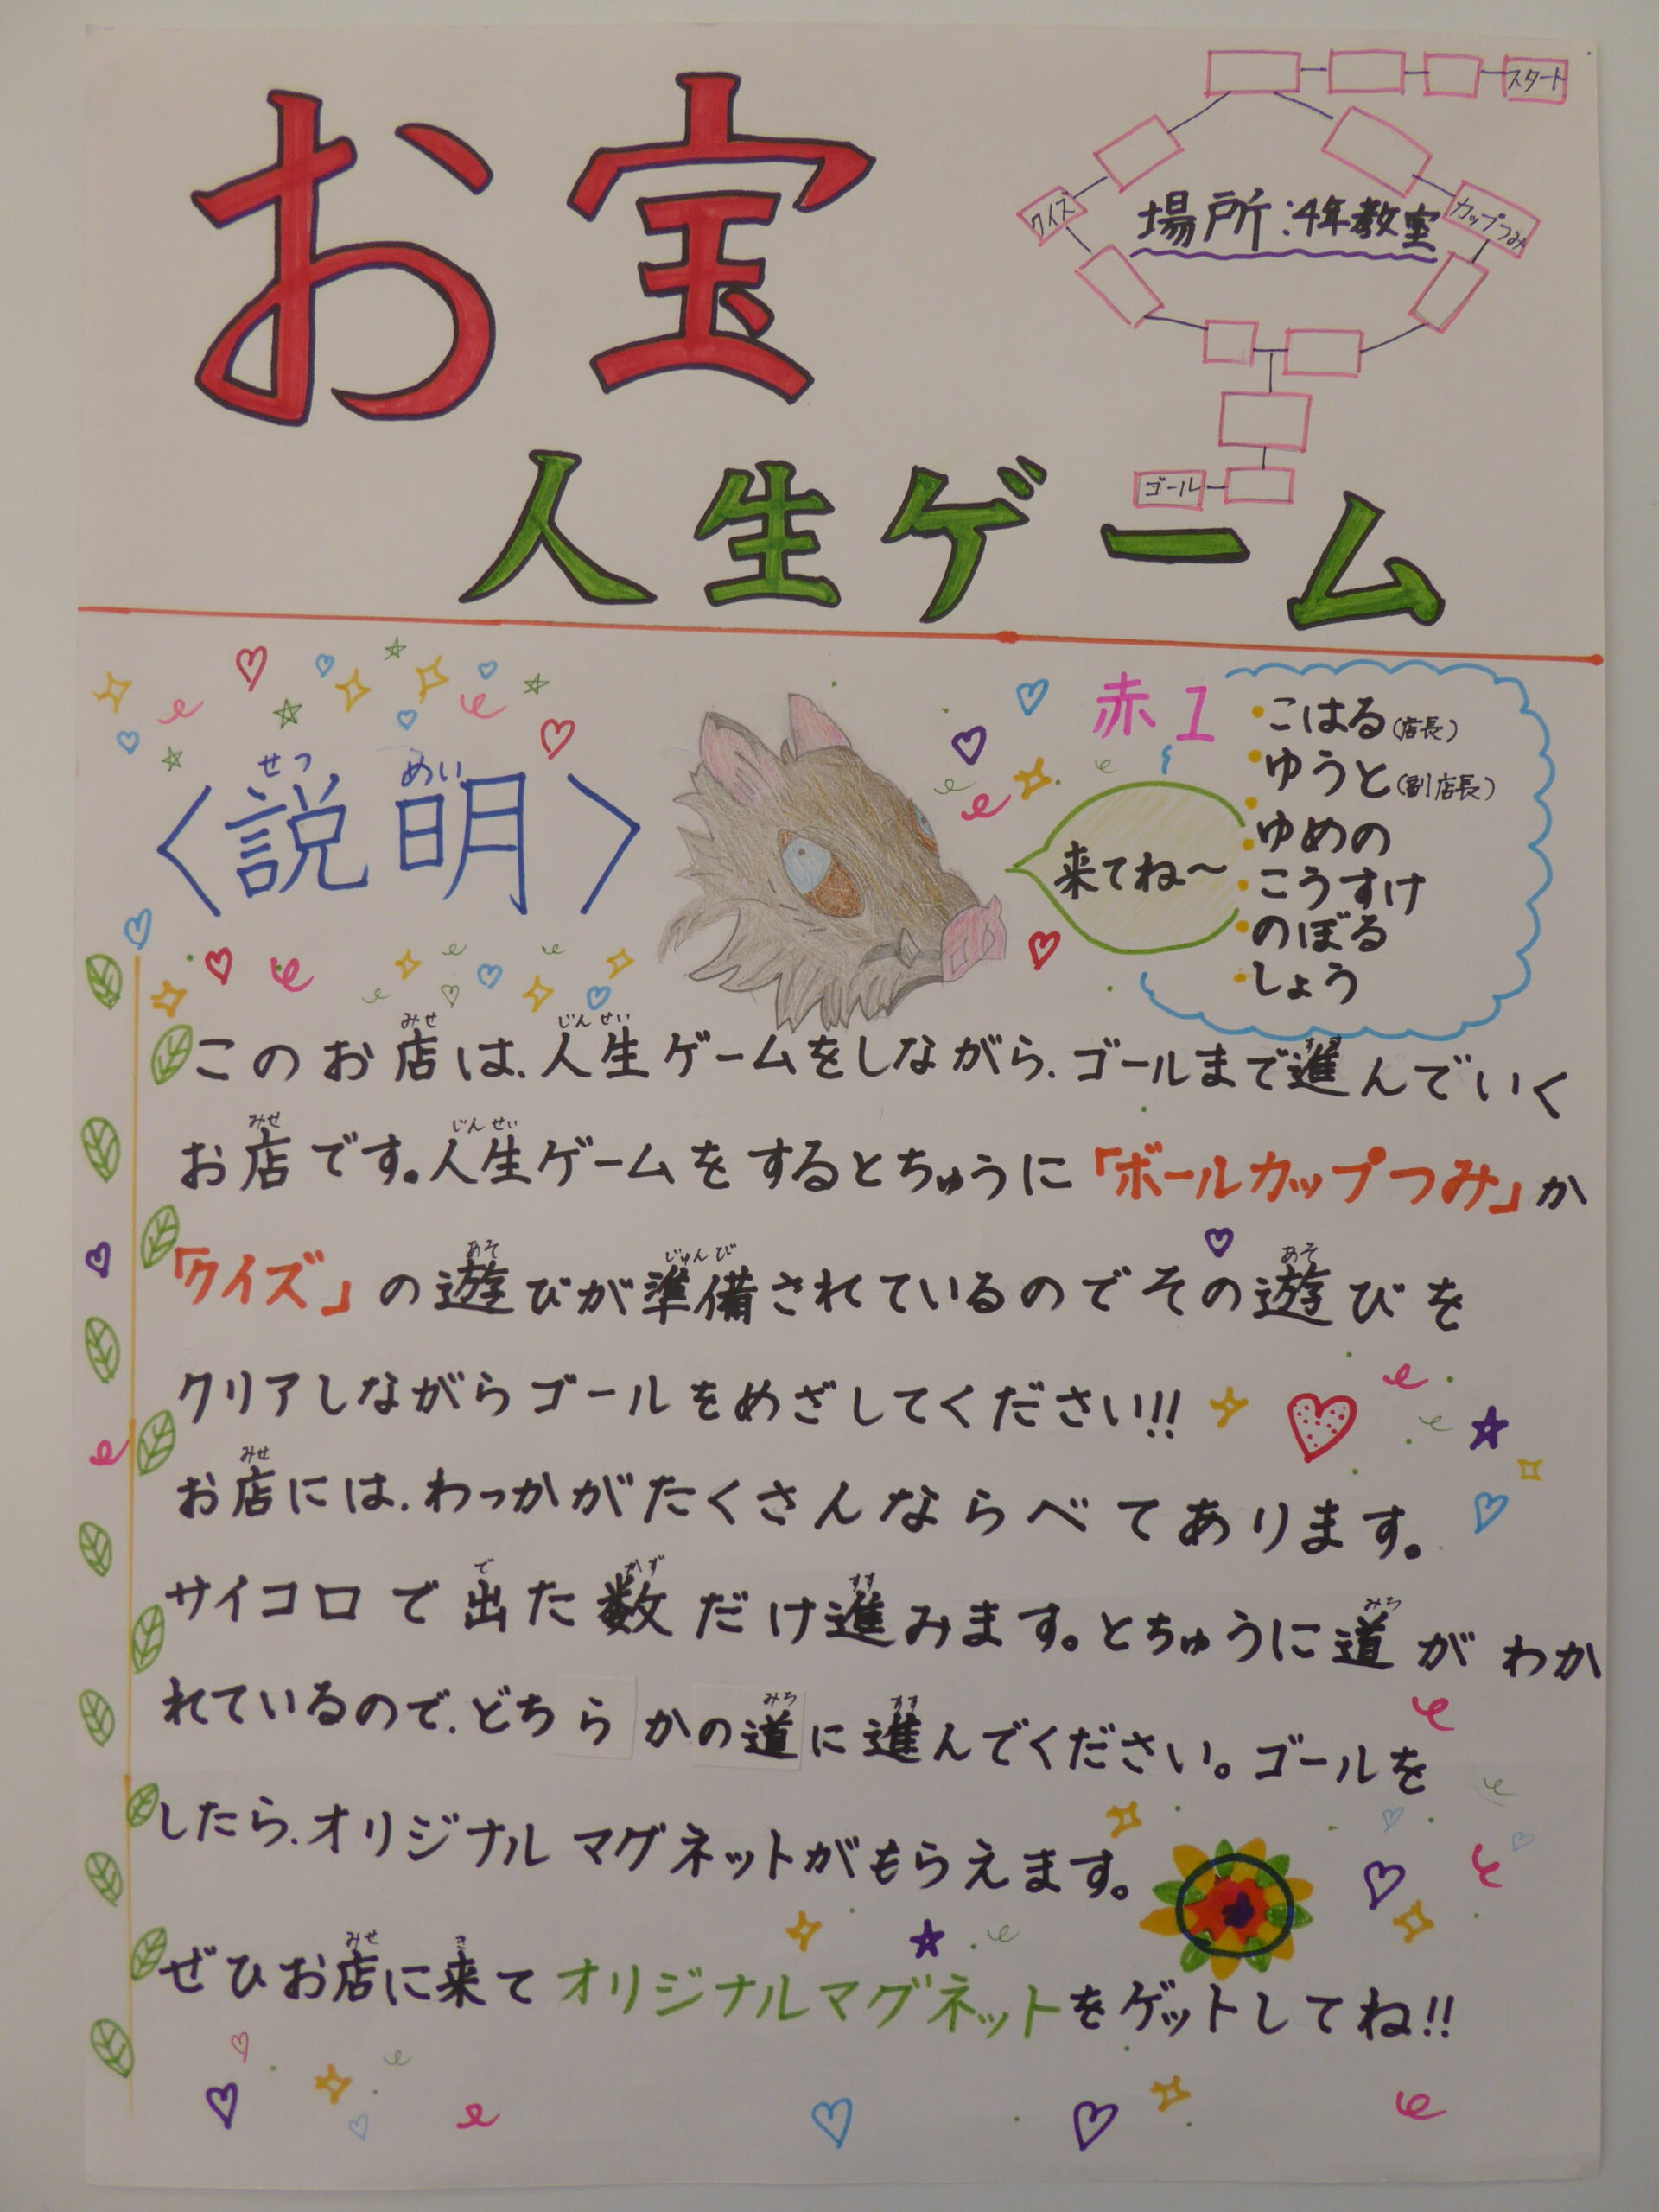 お宝
人生ゲーム
スタート
クイズ
カップつみ
場所:4年教室
ゴール
せつ めい
〈説明〉
来てね～
赤1
・こはる(店長)
・ゆうと(副店長)
・ゆめの
・こうすけ
・のぼる
・しょう
みせ じんせい すす
このお店は、人生ゲームをしながら、ゴールまで進んでいく
みせ じんせい
お店です。人生ゲームをするとちゅうに「ボールカップつみ」か
あそ じゅんび あそ
「クイズ」の遊びが準備されているのでその遊びを
クリアしながらゴールをめざしてください!!
みせ
お店には、わっかがたくさんならべてあります。
で かず すす みち
サイコロで出た数だけ進みます。とちゅうに道がわか
みち すす
れているので、どちらかの道に進んでください。ゴールを
したら、オリジナルマグネットがもらえます。
みせ き
ぜひお店に来てオリジナルマグネットをゲットしてね!!